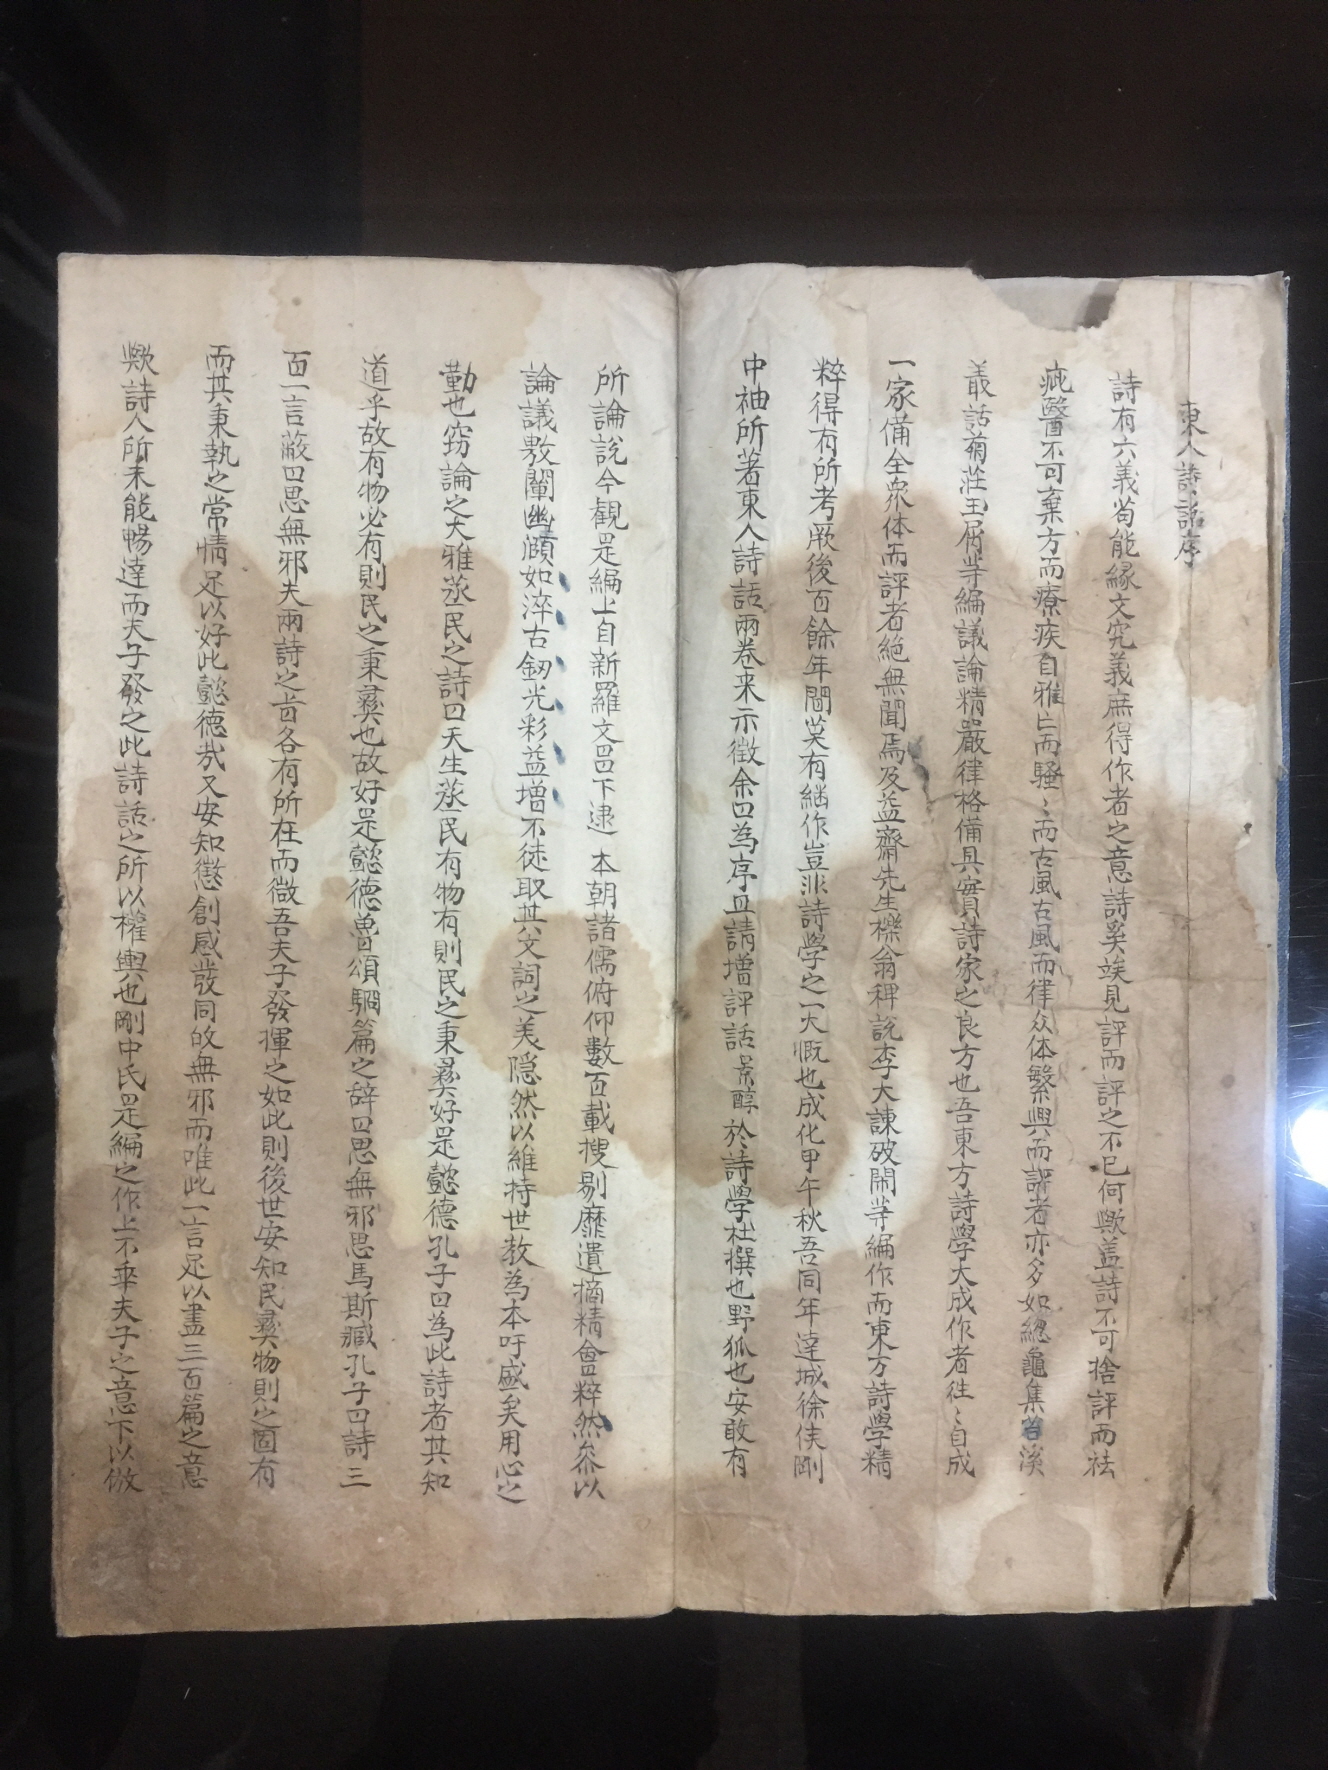 東人詩話序
詩有六義苟能緣文究義庶得作者之意詩奚竢見評而評之不已何歟盖詩不可捨評而祛
疵醫不可棄方而療疾自雅亡而騷〻而古風古風而律众体繁興而評者亦多如緫龜集苕溪
叢話菊莊玉屑䓁編議論精嚴律格備具實詩家之良方也吾東方詩學大成作者徃〻自成
一家備全衆体而評者絶無聞焉及益齋先生櫟翁稗說李大諫破閑䓁編作而東方詩學精
粹得有所考厥後百餘年間莫有継作豈非詩學之一大慨也成化甲午秋吾同年達城徐侯剛
中袖所著東人詩話兩卷来示徵余曰為序且請增評話景醇於詩學杜撰也野狐也安敢有
所論說今觀是編上自新羅文昌下逮 本朝諸儒俯仰數百載搜剔靡遺摘精會粹然叅以
論議敷闡幽頤如淬古釼光彩益增不徒取其文詞之美隠然以維持世敎為本吁盛矣用心之
勤也窃論之大雅烝民之詩曰天生烝民有物有則民之秉彛好是懿德孔子曰為此詩者其知
道乎故有物必有則民之秉彛也故好是懿德魯頌駉篇之辞曰思無邪思馬斯臧孔子曰詩三
百一言蔽曰思無邪夫兩詩之旨各有所在而微吾夫子發揮之如此則後世安知民彛物則之固有
而其秉執之常情足以好此懿德㢤又安知懲創感發同㱕無邪而唯此一言足以盡三百篇之意
歟詩人所未能暢達而夫子發之此詩話之所以權輿也剛中氏是編之作上不乖夫子之意下以倣